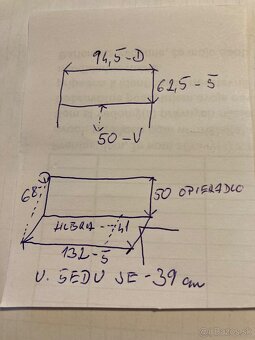 94,5-D
62,5-Š
50-V
68
50 OPIERADLO
HĹBKA - 41
132-Š
V. SEDU JE -39 cm
bazos.sk